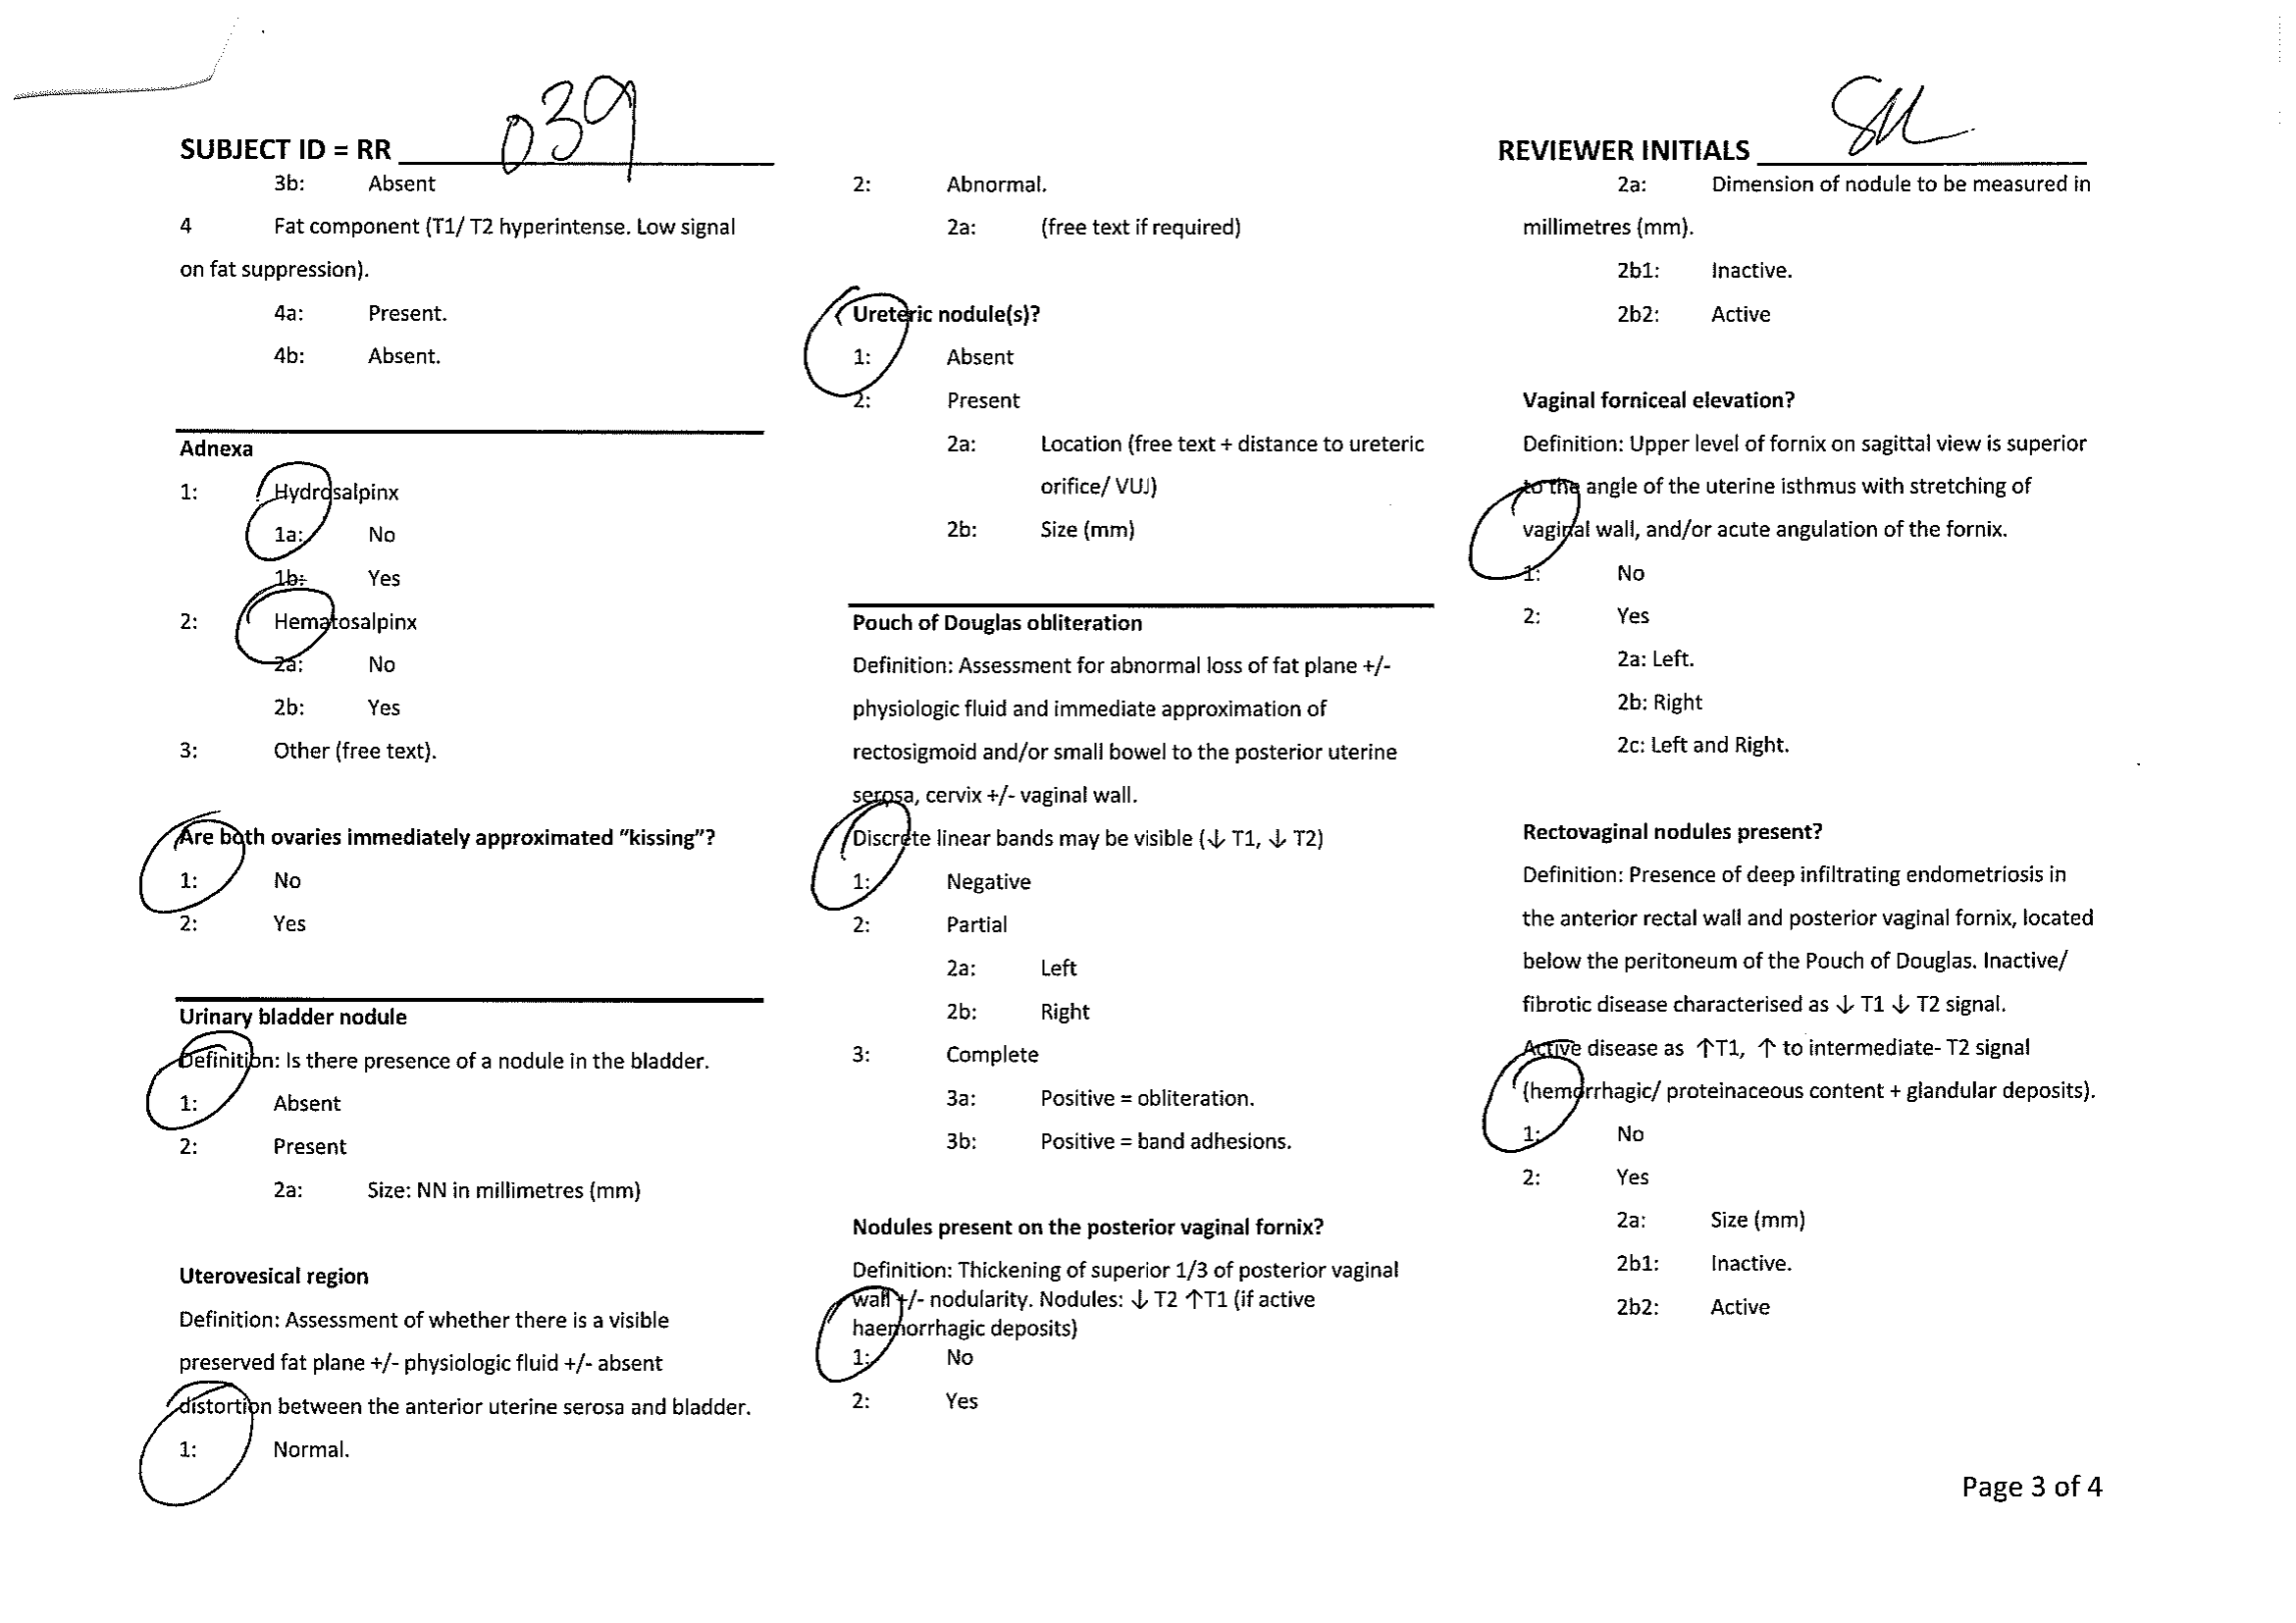 SUBJECT ID = RR 039
REVIEWER INITIALS SM
3b: Absent
4 Fat component (T1/ T2 hyperintense. Low signal
on fat suppression).
4a: Present.
4b: Absent.
Adnexa
1: Hydrosalpinx
1a: No
1b: Yes
2: Hematosalpinx
2a: No
2b: Yes
3: Other (free text).
Are both ovaries immediately approximated “kissing”?
1: No
2: Yes
Urinary bladder nodule
Definition: Is there presence of a nodule in the bladder.
1: Absent
2: Present
2a: Size: NN in millimetres (mm)
Uterovesical region
Definition: Assessment of whether there is a visible
preserved fat plane +/- physiologic fluid +/- absent
distortion between the anterior uterine serosa and bladder.
1: Normal.
2: Abnormal.
2a: (free text if required)
Ureteric nodule(s)?
1: Absent
2: Present
2a: Location (free text + distance to ureteric
orifice/ VUJ)
2b: Size (mm)
Pouch of Douglas obliteration
Definition: Assessment for abnormal loss of fat plane +/-
physiologic fluid and immediate approximation of
rectosigmoid and/or small bowel to the posterior uterine
serosa, cervix +/- vaginal wall.
Discrete linear bands may be visible (↓ T1, ↓ T2)
1: Negative
2: Partial
2a: Left
2b: Right
3: Complete
3a: Positive = obliteration.
3b: Positive = band adhesions.
Nodules present on the posterior vaginal fornix?
Definition: Thickening of superior 1/3 of posterior vaginal
wall +/- nodularity. Nodules: ↓ T2 ↑T1 (if active
haemorrhagic deposits)
1: No
2: Yes
2a: Dimension of nodule to be measured in
millimetres (mm).
2b1: Inactive.
2b2: Active
Vaginal forniceal elevation?
Definition: Upper level of fornix on sagittal view is superior
to the angle of the uterine isthmus with stretching of
vaginal wall, and/or acute angulation of the fornix.
1: No
2: Yes
2a: Left.
2b: Right
2c: Left and Right.
Rectovaginal nodules present?
Definition: Presence of deep infiltrating endometriosis in
the anterior rectal wall and posterior vaginal fornix, located
below the peritoneum of the Pouch of Douglas. Inactive/
fibrotic disease characterised as ↓ T1 ↓ T2 signal.
Active disease as ↑T1, ↑ to intermediate- T2 signal
(hemorrhagic/ proteinaceous content + glandular deposits).
1: No
2: Yes
2a: Size (mm)
2b1: Inactive.
2b2: Active
Page 3 of 4